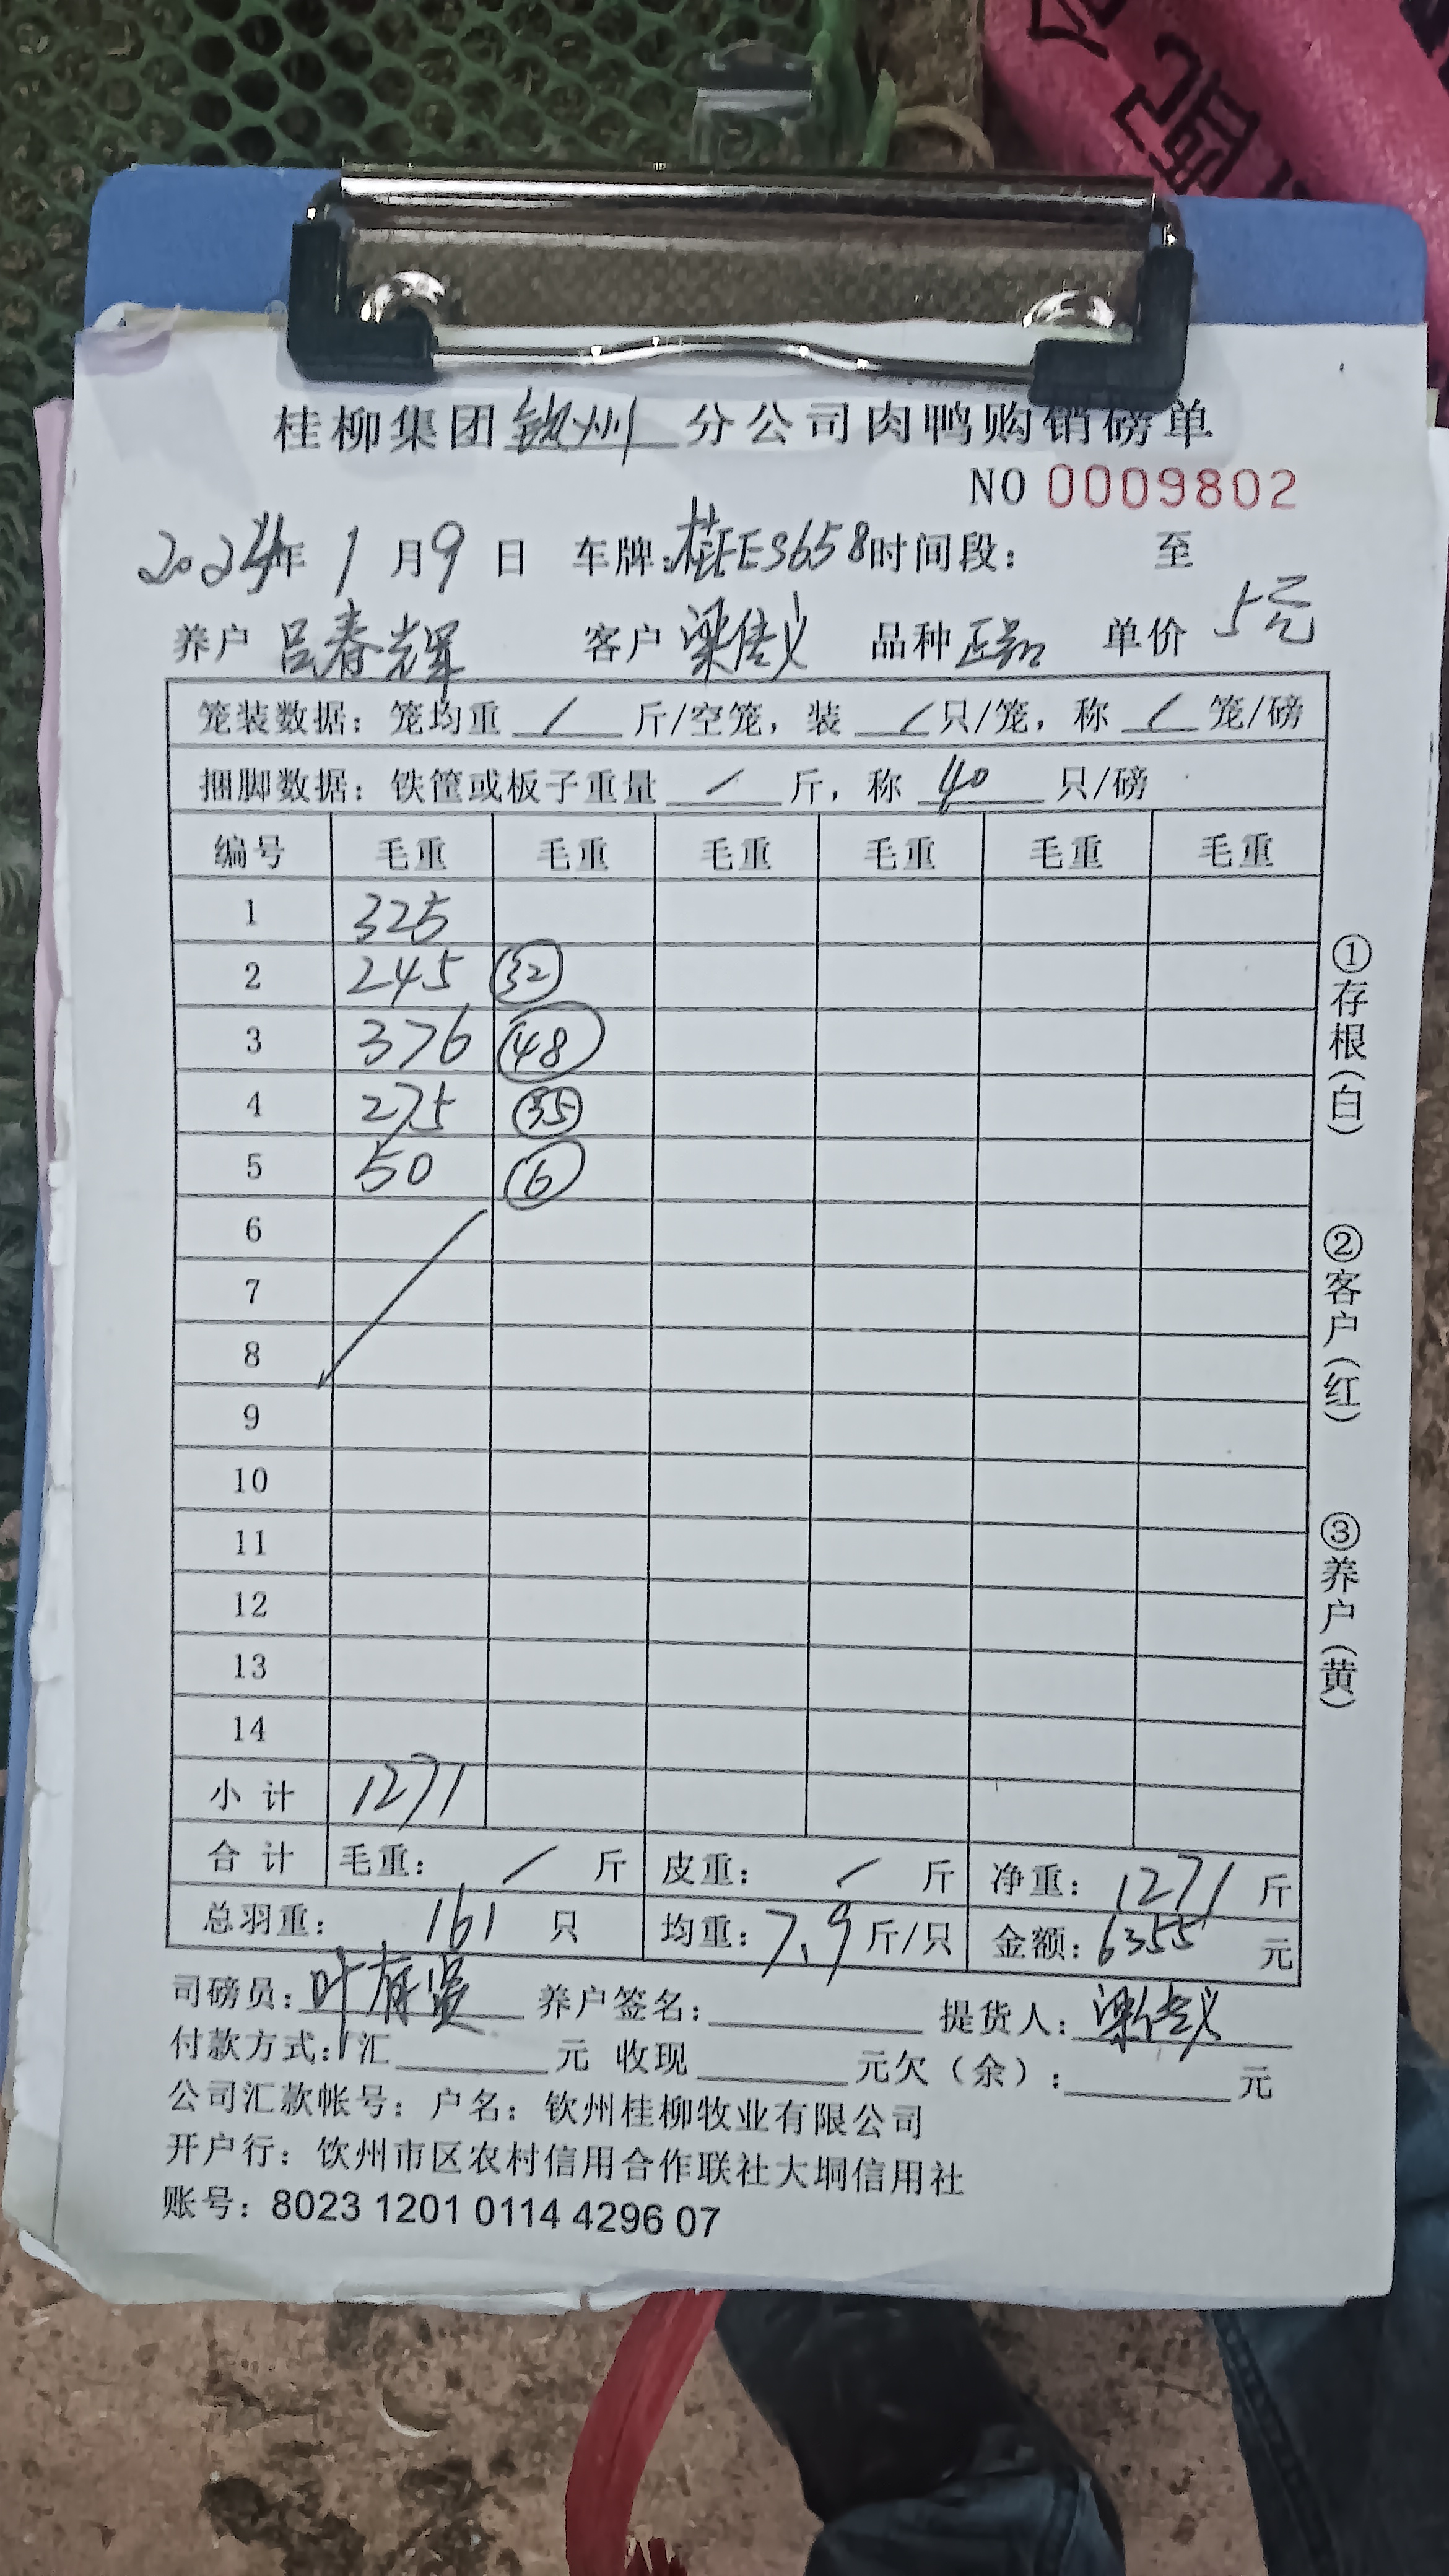 桂柳集团钦州分公司肉鸭购销磅单
NO 0009802
2024年 1月9日 车牌:桂EE3658时间段: 至
养户 吕春辉 客户 梁传义 品种 正品 单价 5元
笼装数据: 笼均重 / 斤/空笼, 装 / 只/笼, 称 / 笼/磅
捆脚数据: 铁筐或板子重量 / 斤, 称 40 只/磅
编号 毛重 毛重 毛重 毛重 毛重 毛重
1 325
2 245 32
3 376 48
4 275 35
5 50 6
6
7
8
9
10
11
12
13
14
小计 1271
合计 毛重: / 斤 皮重: / 斤 净重: 1271 斤
总羽重: 161 只 均重: 7.9 斤/只 金额: 6355 元
司磅员: 叶 养户签名: 提货人: 梁传义
付款方式: 汇 元 收现 元欠(余): 元
公司汇款帐号: 户名: 钦州桂柳牧业有限公司
开户行: 饮州市区农村信用合作联社大垌信用社
账号: 8023 1201 0114 4296 07
①存根(白)
②客户(红)
③养户(黄)